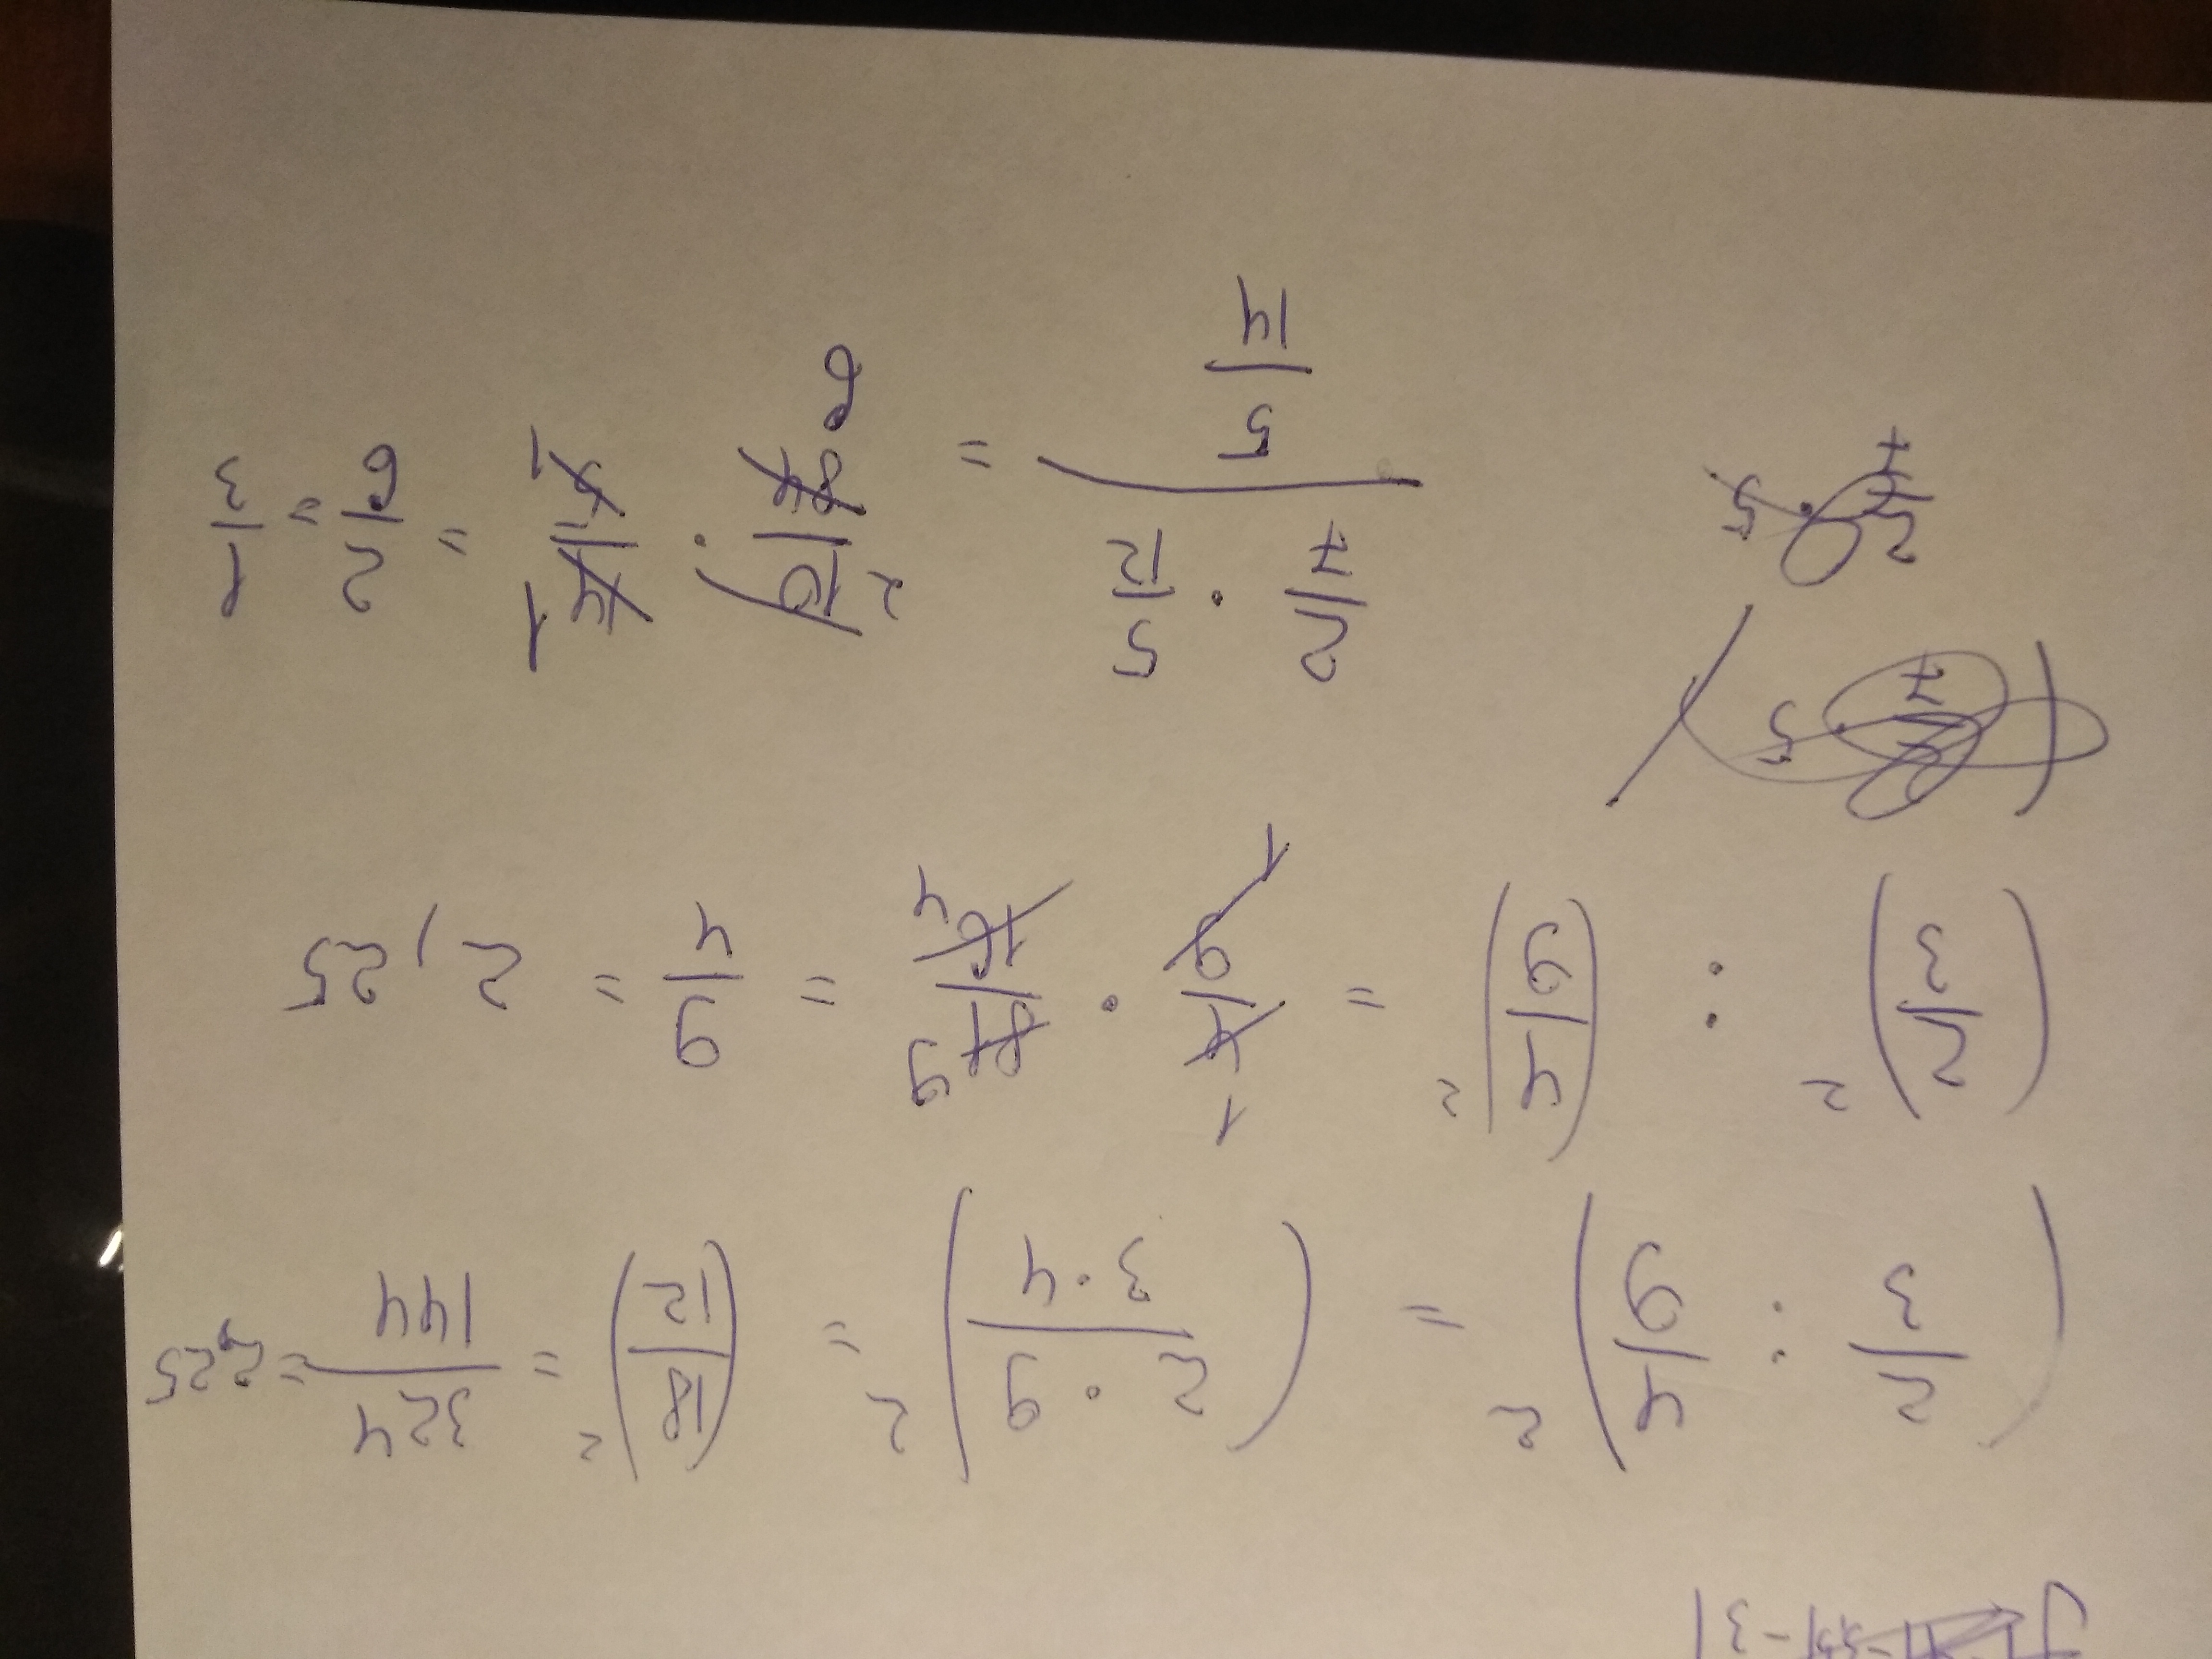 (2/3 : 4/9)² = (2·9/3·4)² = (18/12)² = 324/144 = 2,25
(2/3)² : (4/9)² = 4/9 · 81/16 = 9/4 = 2,25
1 9
1 4
2/7 · 5
2/7 · 5/12 / 5/14 = 10/84 · 14/5 = 2/6 = 1/3
2 1
6 1
2/7 · 5